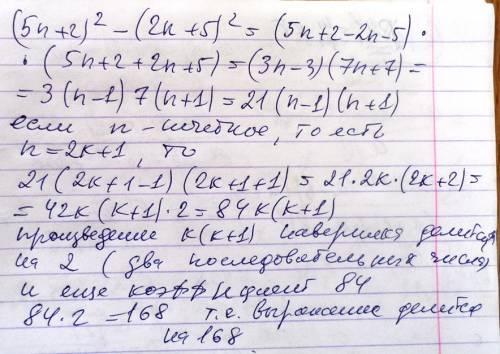 (5n+2)² − (2n+5)² = (5n+2−2n−5) ·
· (5n+2+2n+5) = (3n−3)(7n+7) =
= 3(n−1) 7(n+1) = 21(n−1)(n+1)
если n - нечетное, то есть
n = 2k+1, то
21(2k+1−1)(2k+1+1) = 21·2k·(2k+2) =
= 42k(k+1)·2 = 84k(k+1)
произведение k(k+1) наверняка делится
на 2 (два последовательных числа)
и еще коэффициент 84
84·2 = 168 т.е. выражение делится
на 168